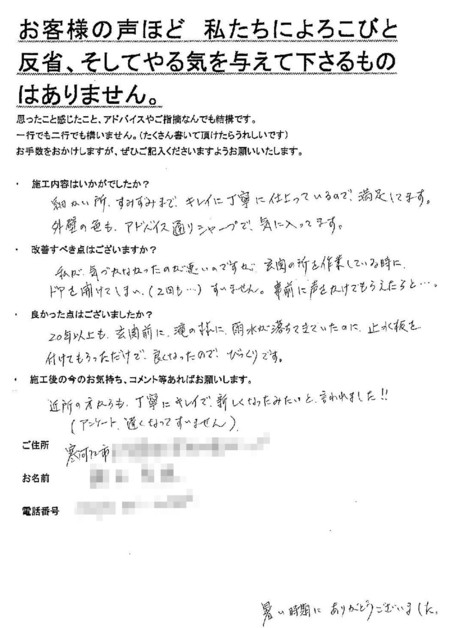 お客様の声ほど　私たちによろこびと
反省、そしてやる気を与えて下さるもの
はありません。
思ったこと感じたこと、アドバイスやご指摘なんでも結構です。
一行でも二行でも構いません。（たくさん書いて頂けたらうれしいです）
お手数をおかけしますが、ぜひご記入くださいますようお願いいたします。
・ 施工内容はいかがでしたか？
細かい所、すみずみまで、キレイに丁寧に仕上っているので、満足してます。
外壁の色も、アドバイス通りシャープで、気に入ってます。
・ 改善すべき点はございますか？
私が、気づかなかったのが悪いのですが、玄関の所を作業している時に、
ドアを開けてしまい、（2回も…）すいません。事前に声をかけてもらえたらと…。
・ 良かった点はございましたか？
20年以上も、玄関前に、滝の様に、雨水が落ちてきていたのに、止水板を
付けてもらっただけで、良くなったので、びっくりです。
・ 施工後の今のお気持ち、コメント等あればお願いします。
近所の方からも、丁寧にキレイで、新しくなったみたいと、言われました!!
（アンケート、遅くなってすいません）
ご住所　寒河江市
お名前
電話番号
暑い時期に ありがとうございました。